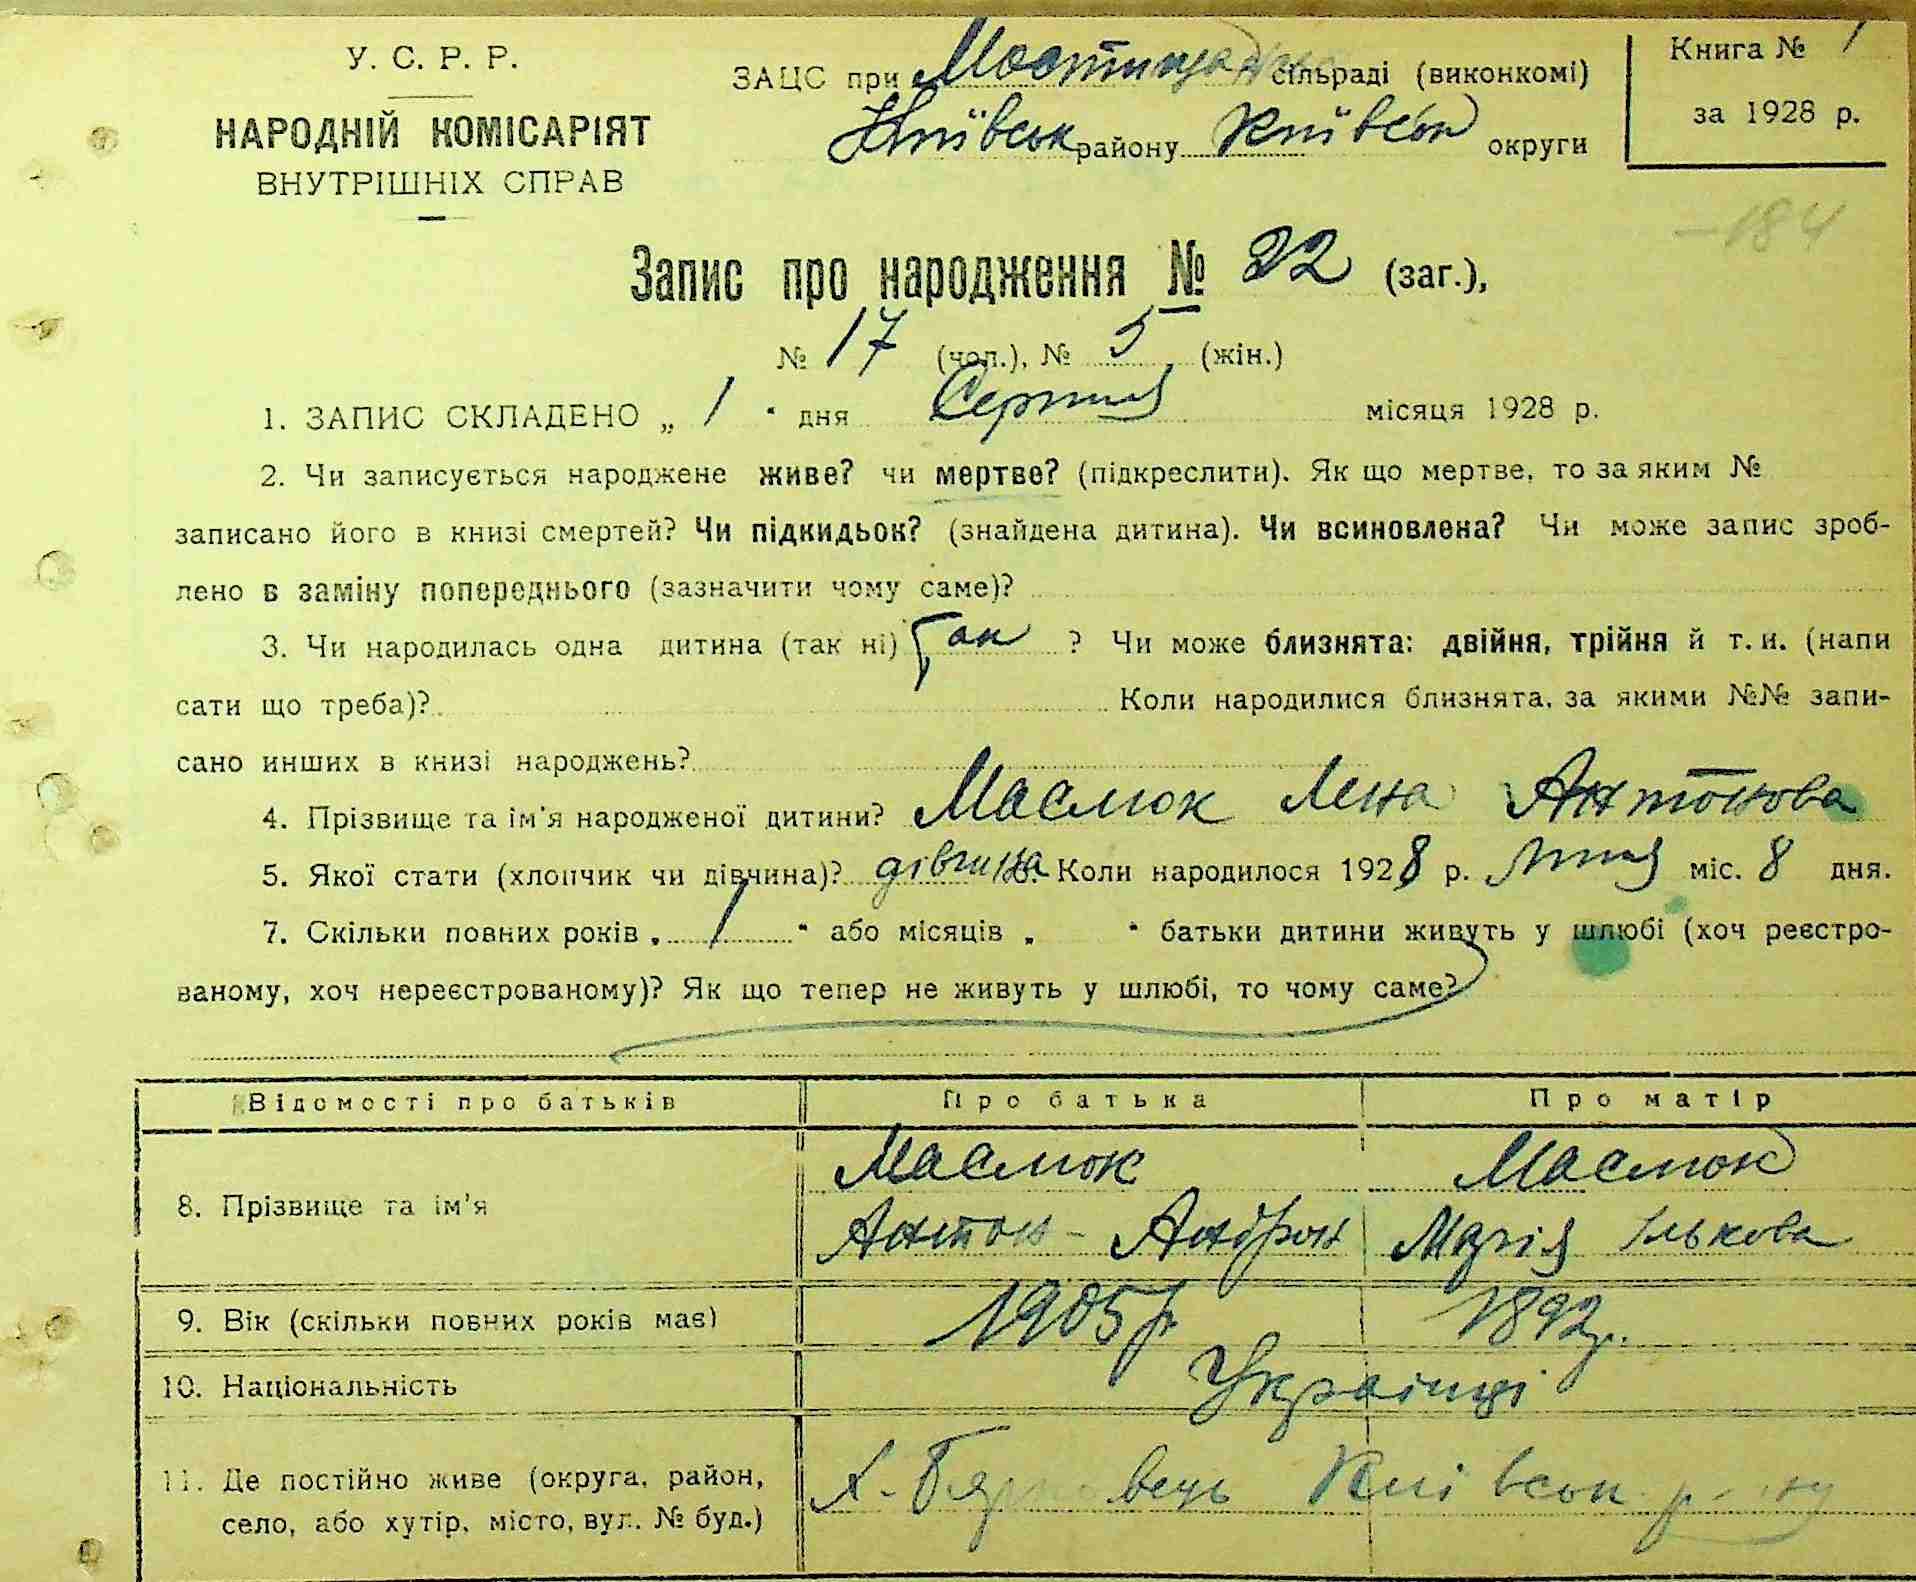 У. С. Р. Р.
НАРОДНІЙ КОМІСАРІЯТ
ВНУТРІШНІХ СПРАВ
ЗАЦС при сільраді (виконкомі)
Київськ району Київськ округи
Книга № 1
за 1928 р.
-184
Запис про народження № 22 (заг.),
№ 17 (чол.), № 5 (жін.)
1. ЗАПИС СКЛАДЕНО „ 1 " дня Серпня місяця 1928 р.
2. Чи записується народжене живе? чи мертве? (підкреслити). Як що мертве, то за яким №
записано його в книзі смертей? Чи підкидьок? (знайдена дитина). Чи всиновлена? Чи може запис зроб-
лено в заміну попереднього (зазначити чому саме)?
3. Чи народилась одна дитина (так ні) Так ? Чи може близнята: двійня, трійня й т. и. (напи
сати що треба)? Коли народилися близнята, за якими №№ запи-
сано инших в книзі народжень?
4. Прізвище та ім'я народженої дитини? Маслюк Лена Антонова
5. Якої стати (хлопчик чи дівчина)? дівчина Коли народилося 1928 р. Липня міс. 8 дня.
7. Скільки повних років „ 1 " або місяців „ " батьки дитини живуть у шлюбі (хоч реєстро-
ваному, хоч нереєстрованому)? Як що тепер не живуть у шлюбі, то чому саме?
Відомості про батьків Про батька Про матір
8. Прізвище та ім'я Маслюк Маслюк
Антон - Андрон Марія Ількова
9. Вік (скільки повних років має) 1905 р 1892 р.
10. Національність Українці
11. Де постійно живе (округа, район,
село, або хутір, місто, вул. № буд.) Х. Київськ